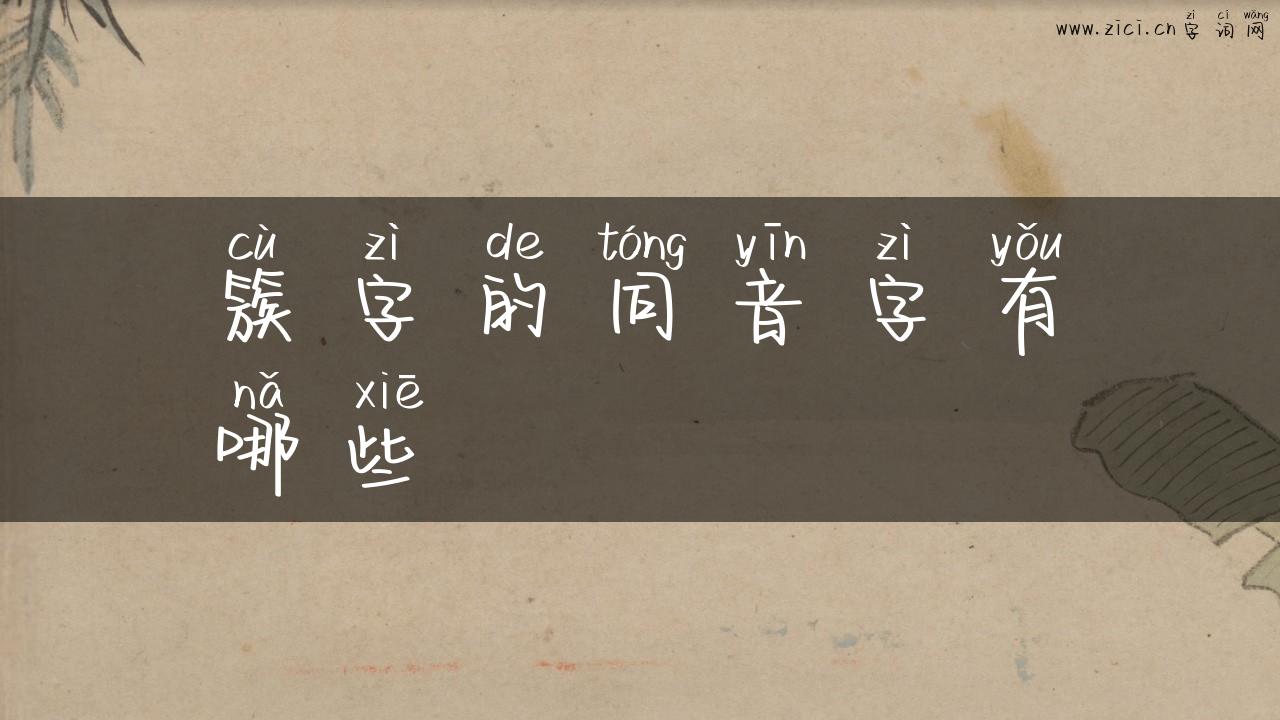 zì cí wǎng
www.zici.cn 字 词 网
cù zì de tóng yīn zì yǒu
簇 字 的 同 音 字 有
nǎ xiē
哪 些